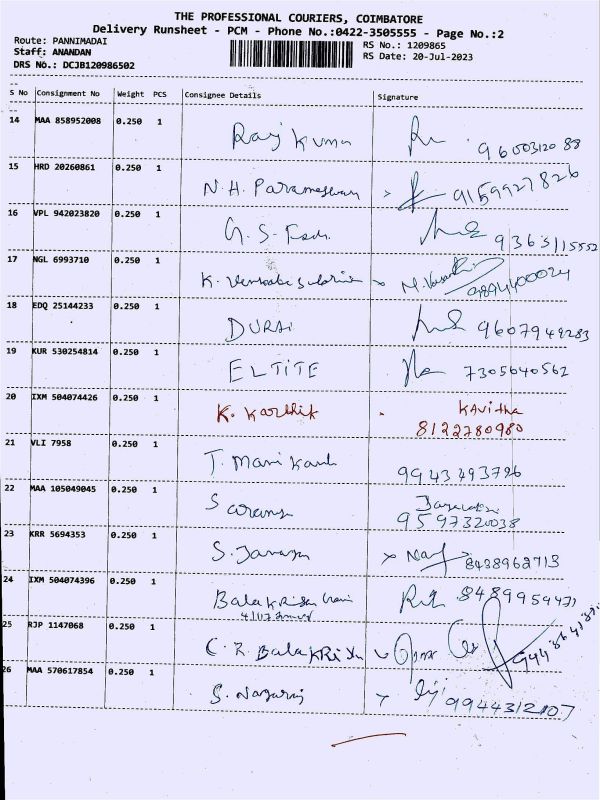 THE PROFESSIONAL COURIERS, COIMBATORE
Delivery Runsheet - PCM - Phone No.:0422-3505555 - Page No.:2
Route: PANNIMADAI
Staff: ANANDAN
RS No.: 1209865
RS Date: 20-Jul-2023
DRS No.: DCJB120986502
S No Consignment No Weight PCS Consignee Details Signature
14 MAA 858952008 0.250 1 Raj Kumar
15 HRD 20260861 0.250 1 N.H. Parameswari 9159927826
16 VPL 942023820 0.250 1 G.S. 9363115552
17 NGL 6993710 0.250 1 K.
18 EDQ 25144233 0.250 1 DURAI 9607949283
19 KUR 530254814 0.250 1 ELTITE 7305640562
20 IXM 504074426 0.250 1 K. Karthik Kavitha
8122780980
21 VLI 7958 0.250 1 T. Manikant 9943493726
22 MAA 105049045 0.250 1
9597320038
23 KRR 5694353 0.250 1 S. 8438962713
24 IXM 504074396 0.250 1 8489959471
25 RJP 1147068 0.250 1 C.R. BalaKRiSh
26 MAA 570617854 0.250 1 S. Nagaraj 9944312107